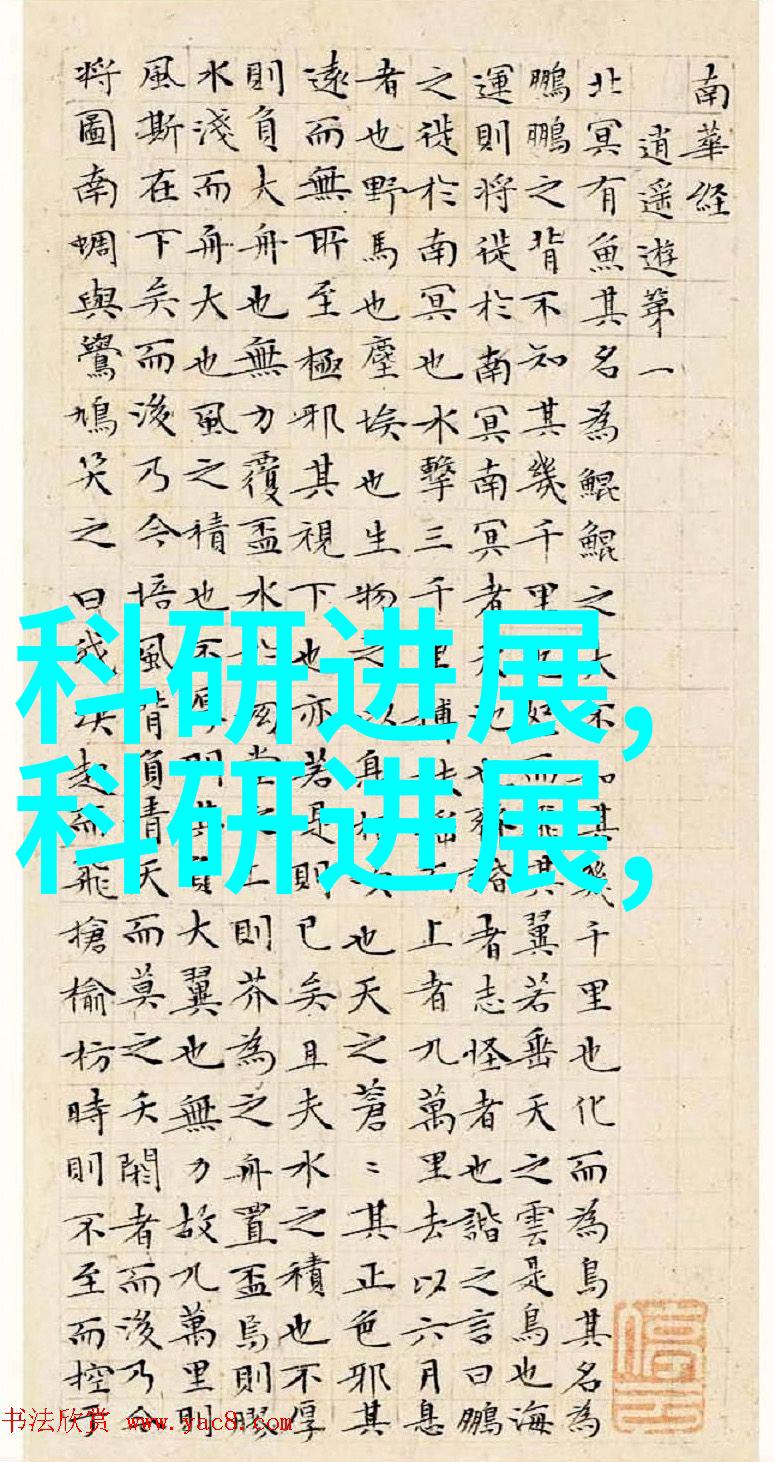 南華經
逍遥遊第一
北冥有魚其名為鯤鯤之大不知其幾千里也化而為鳥其名為
鵬鵬之背不知其幾千里也怒而飛其翼若垂天之雲是鳥也海
運則將徙於南冥南冥者天池也齊諧者志怪者也諧之言曰鵬
之徙於南冥也水擊三千里摶扶摇而上者九萬里去以六月息
者也野馬也塵埃也生物之以息相吹也天之蒼〻其正色邪其
遠而無所至極邪其視下也亦若是則已矣且夫水之積也不厚
則負大舟也無力覆盃水於坳堂之上則芥為之舟置盃焉則膠
水淺而舟大也風之積也不厚則其負大翼也無力故九萬里則
風斯在下矣而後乃今培風背負青天而莫之夭閼者而後乃今
將圖南蜩與鷽鳩笑之曰我決起而飛搶榆枋時則不至而控於
科研进展,
科研进展,
书法欣赏 www.yac8.com